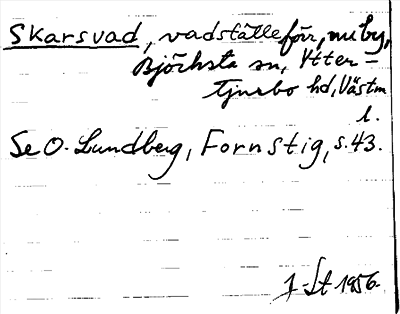 Skarsvad, vadställe förr, nu by,
Björksta sn, Ytter-
tjurbo hd, Västm
l.
Se O. Lundberg, Fornstig, s. 43.
J-St 1956.